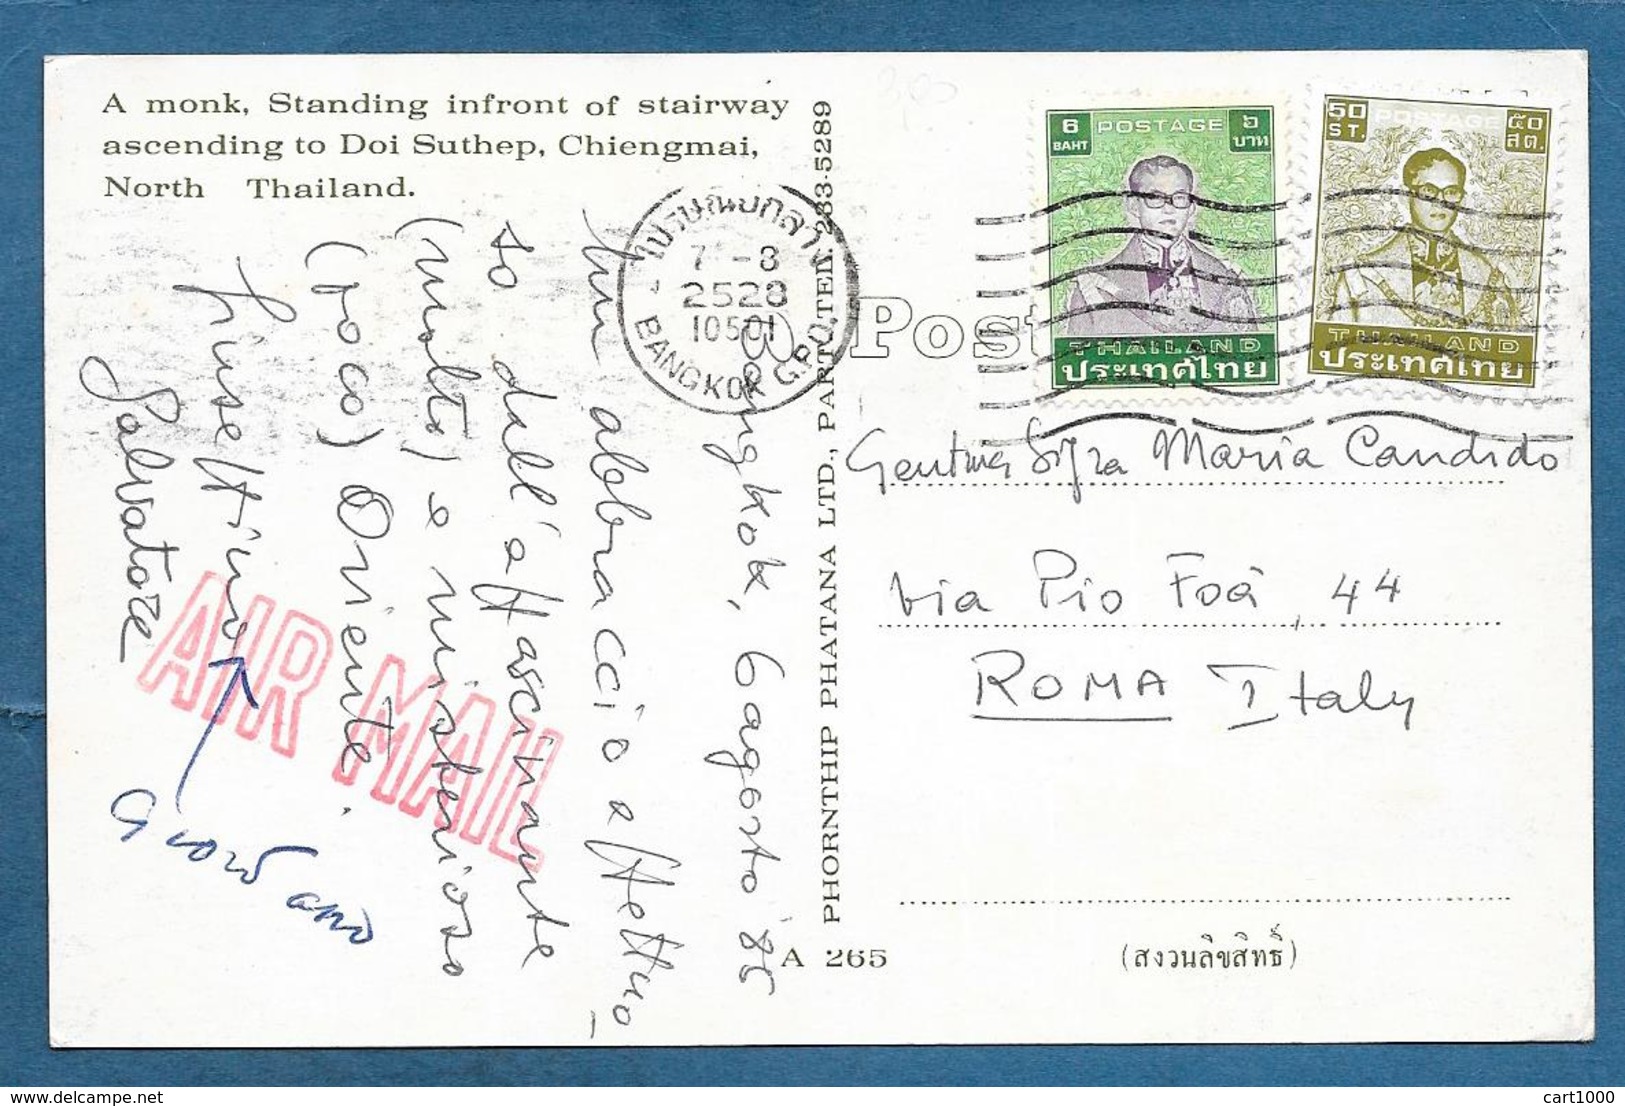 A monk, Standing infront of stairway
ascending to Doi Suthep, Chiengmai,
North Thailand.
Bangkok, 6 agosto '85
Un abbraccio affettuo-
so dall'affascinante
(molto) e misterioso
(poco) Oriente.
Giuseppino
Salvatore
Giordano
AIR MAIL
ไปรษณีย์กลาง
7 -8
2528
10501
BANGKOK G.P.O.
PHORNTHIP PHATANA LTD., PART. TEL. 233-5289
A 265
Post
6 POSTAGE ๖
BAHT บาท
THAILAND
ประเทศไทย
50 POSTAGE ๕๐
ST. สต.
THAILAND
ประเทศไทย
Gentma Sig.ra Maria Candido
via Pio Foà, 44
ROMA Italy
(สงวนลิขสิทธิ์)
cart1000